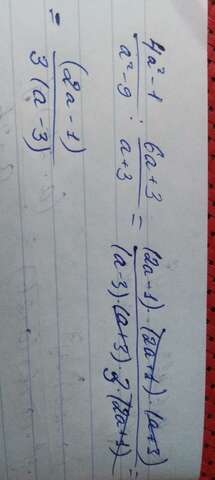 4a² - 1 / a² - 9 : 6a + 3 / a + 3 = (2a - 1) · (2a + 1) · (a + 3) / (a - 3) · (a + 3) · 3 · (2a + 1) =
= (2a - 1) / 3 (a - 3)